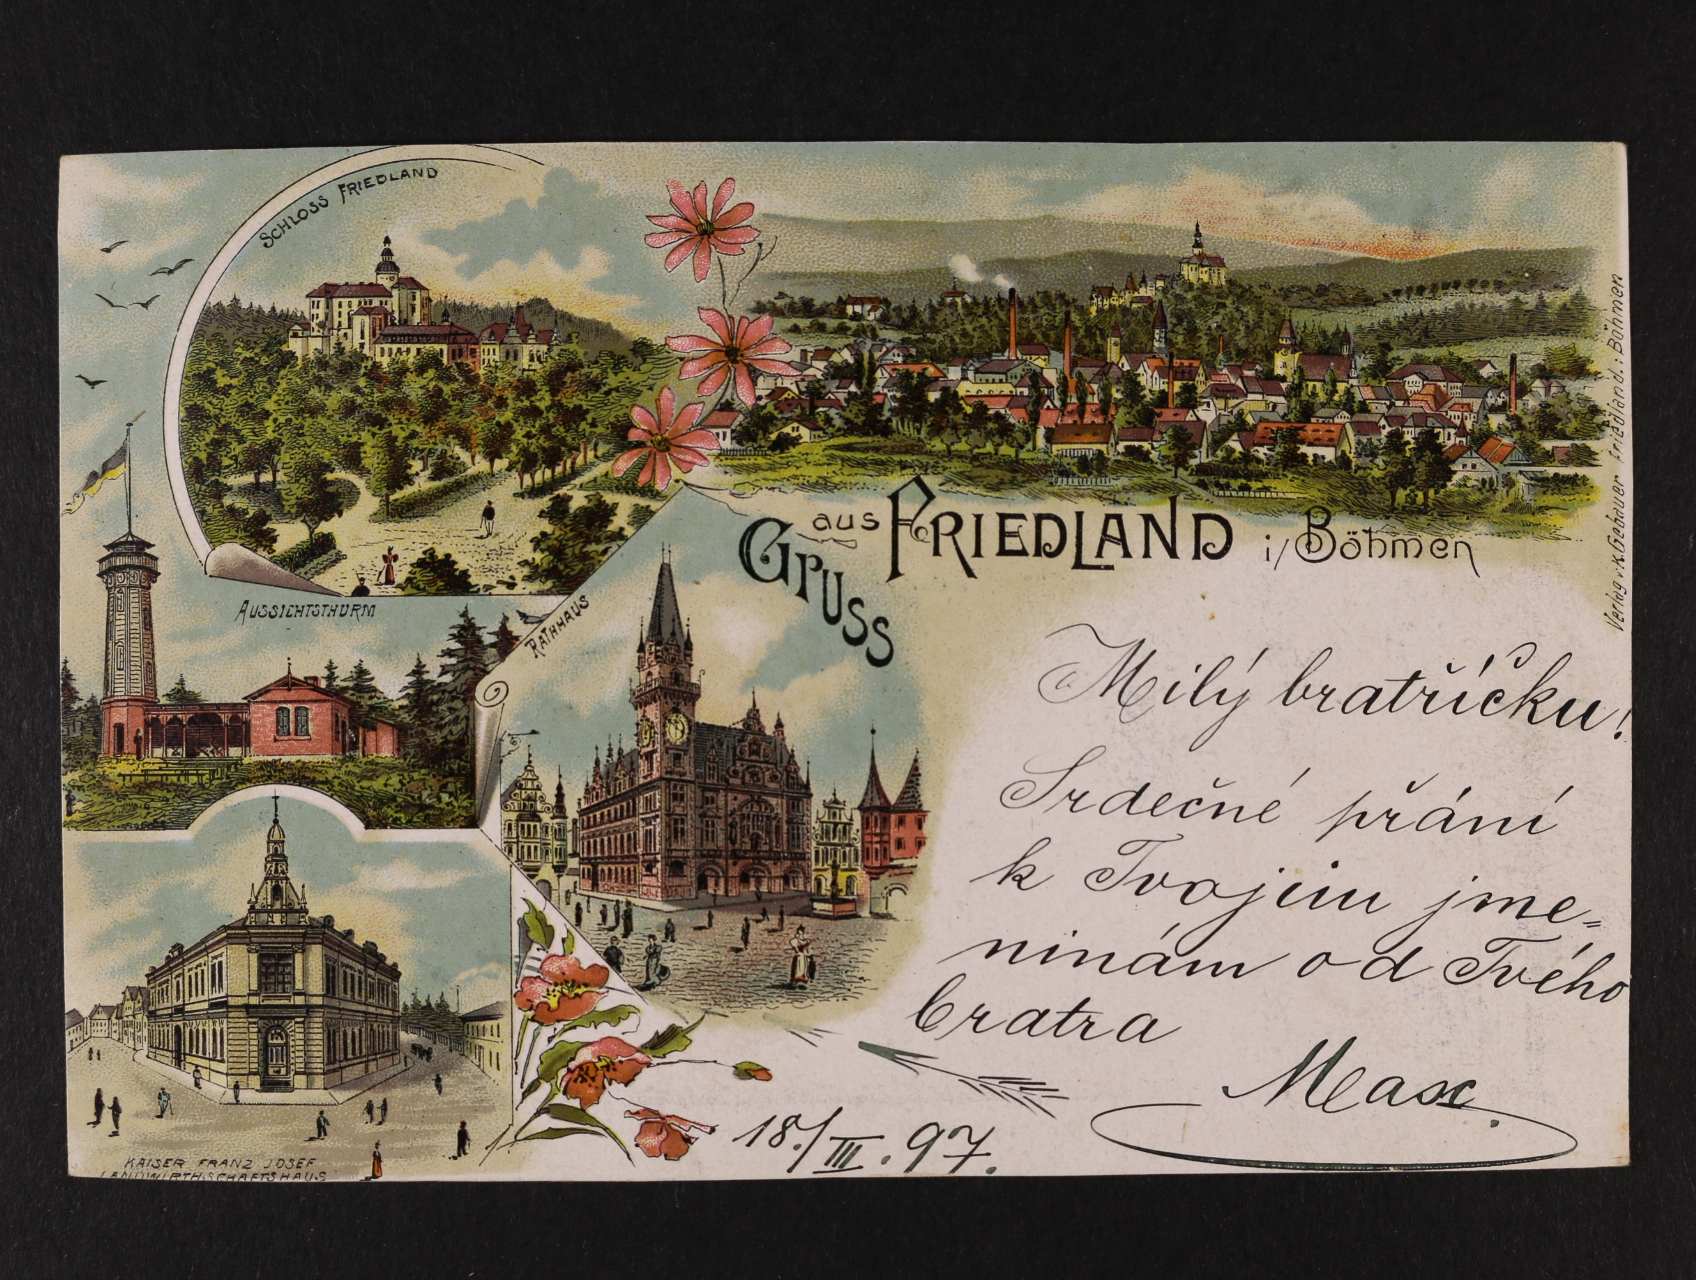 SCHLOSS FRIEDLAND
GRUSS aus FRIEDLAND i/Böhmen
Verlag v. K. Gebauer Friedland i. Böhmen
AUSSICHTSTHURM
RATHHAUS
KAISER FRANZ JOSEF
LANDWIRTHSCHAFTSHAUS
Milý bratříčku!
Srdečné přání
k Tvojim jme-
ninám od Tvého
bratra
Max.
18./III. 97.